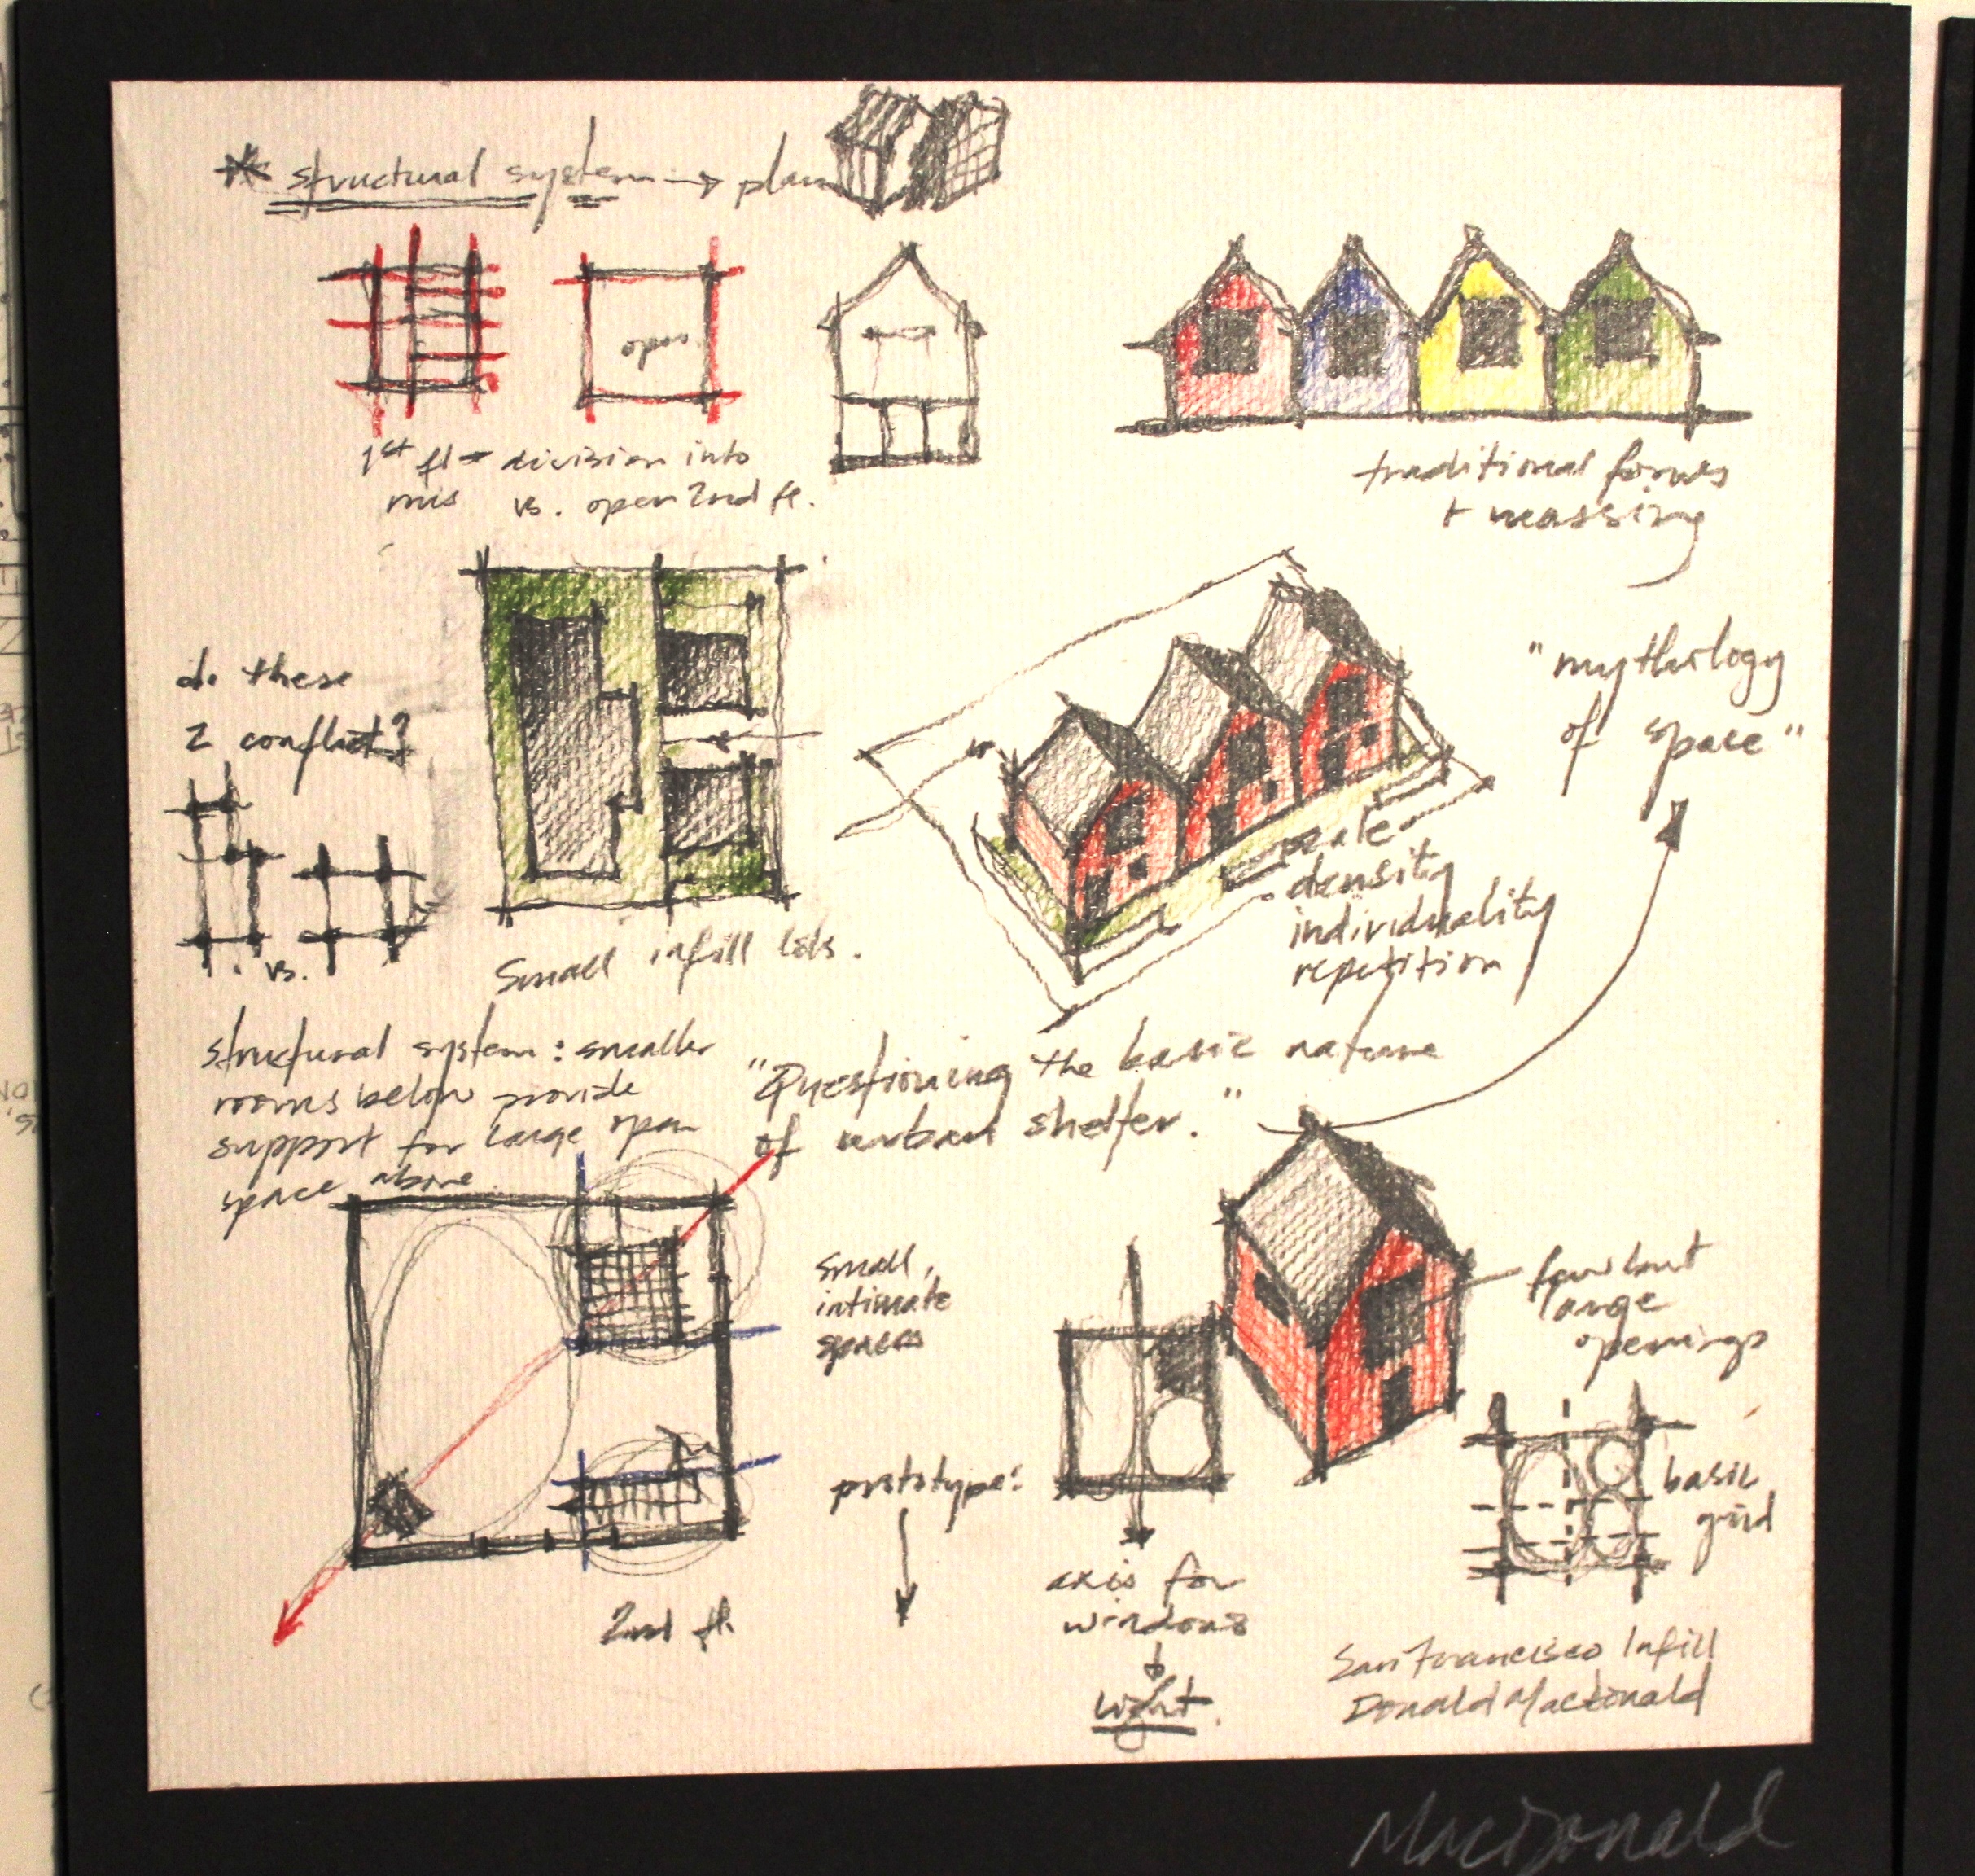 * structural system → plan
open
1st fl = division into
rms vs. open 2nd fl.
traditional forms
+ massing
do these
2 conflict?
vs.
small infill lots.
"mythology
of space"
scale
density
individuality
repetition
structural system: smaller
rooms below provide
support for large open
space above
"Questioning the basic nature
of urban shelter."
small,
intimate
spaces
2nd fl.
prototype:
axis for
windows
light.
few but
large
openings
basic
grid
San Francisco Infill
Donald MacDonald
MacDonald